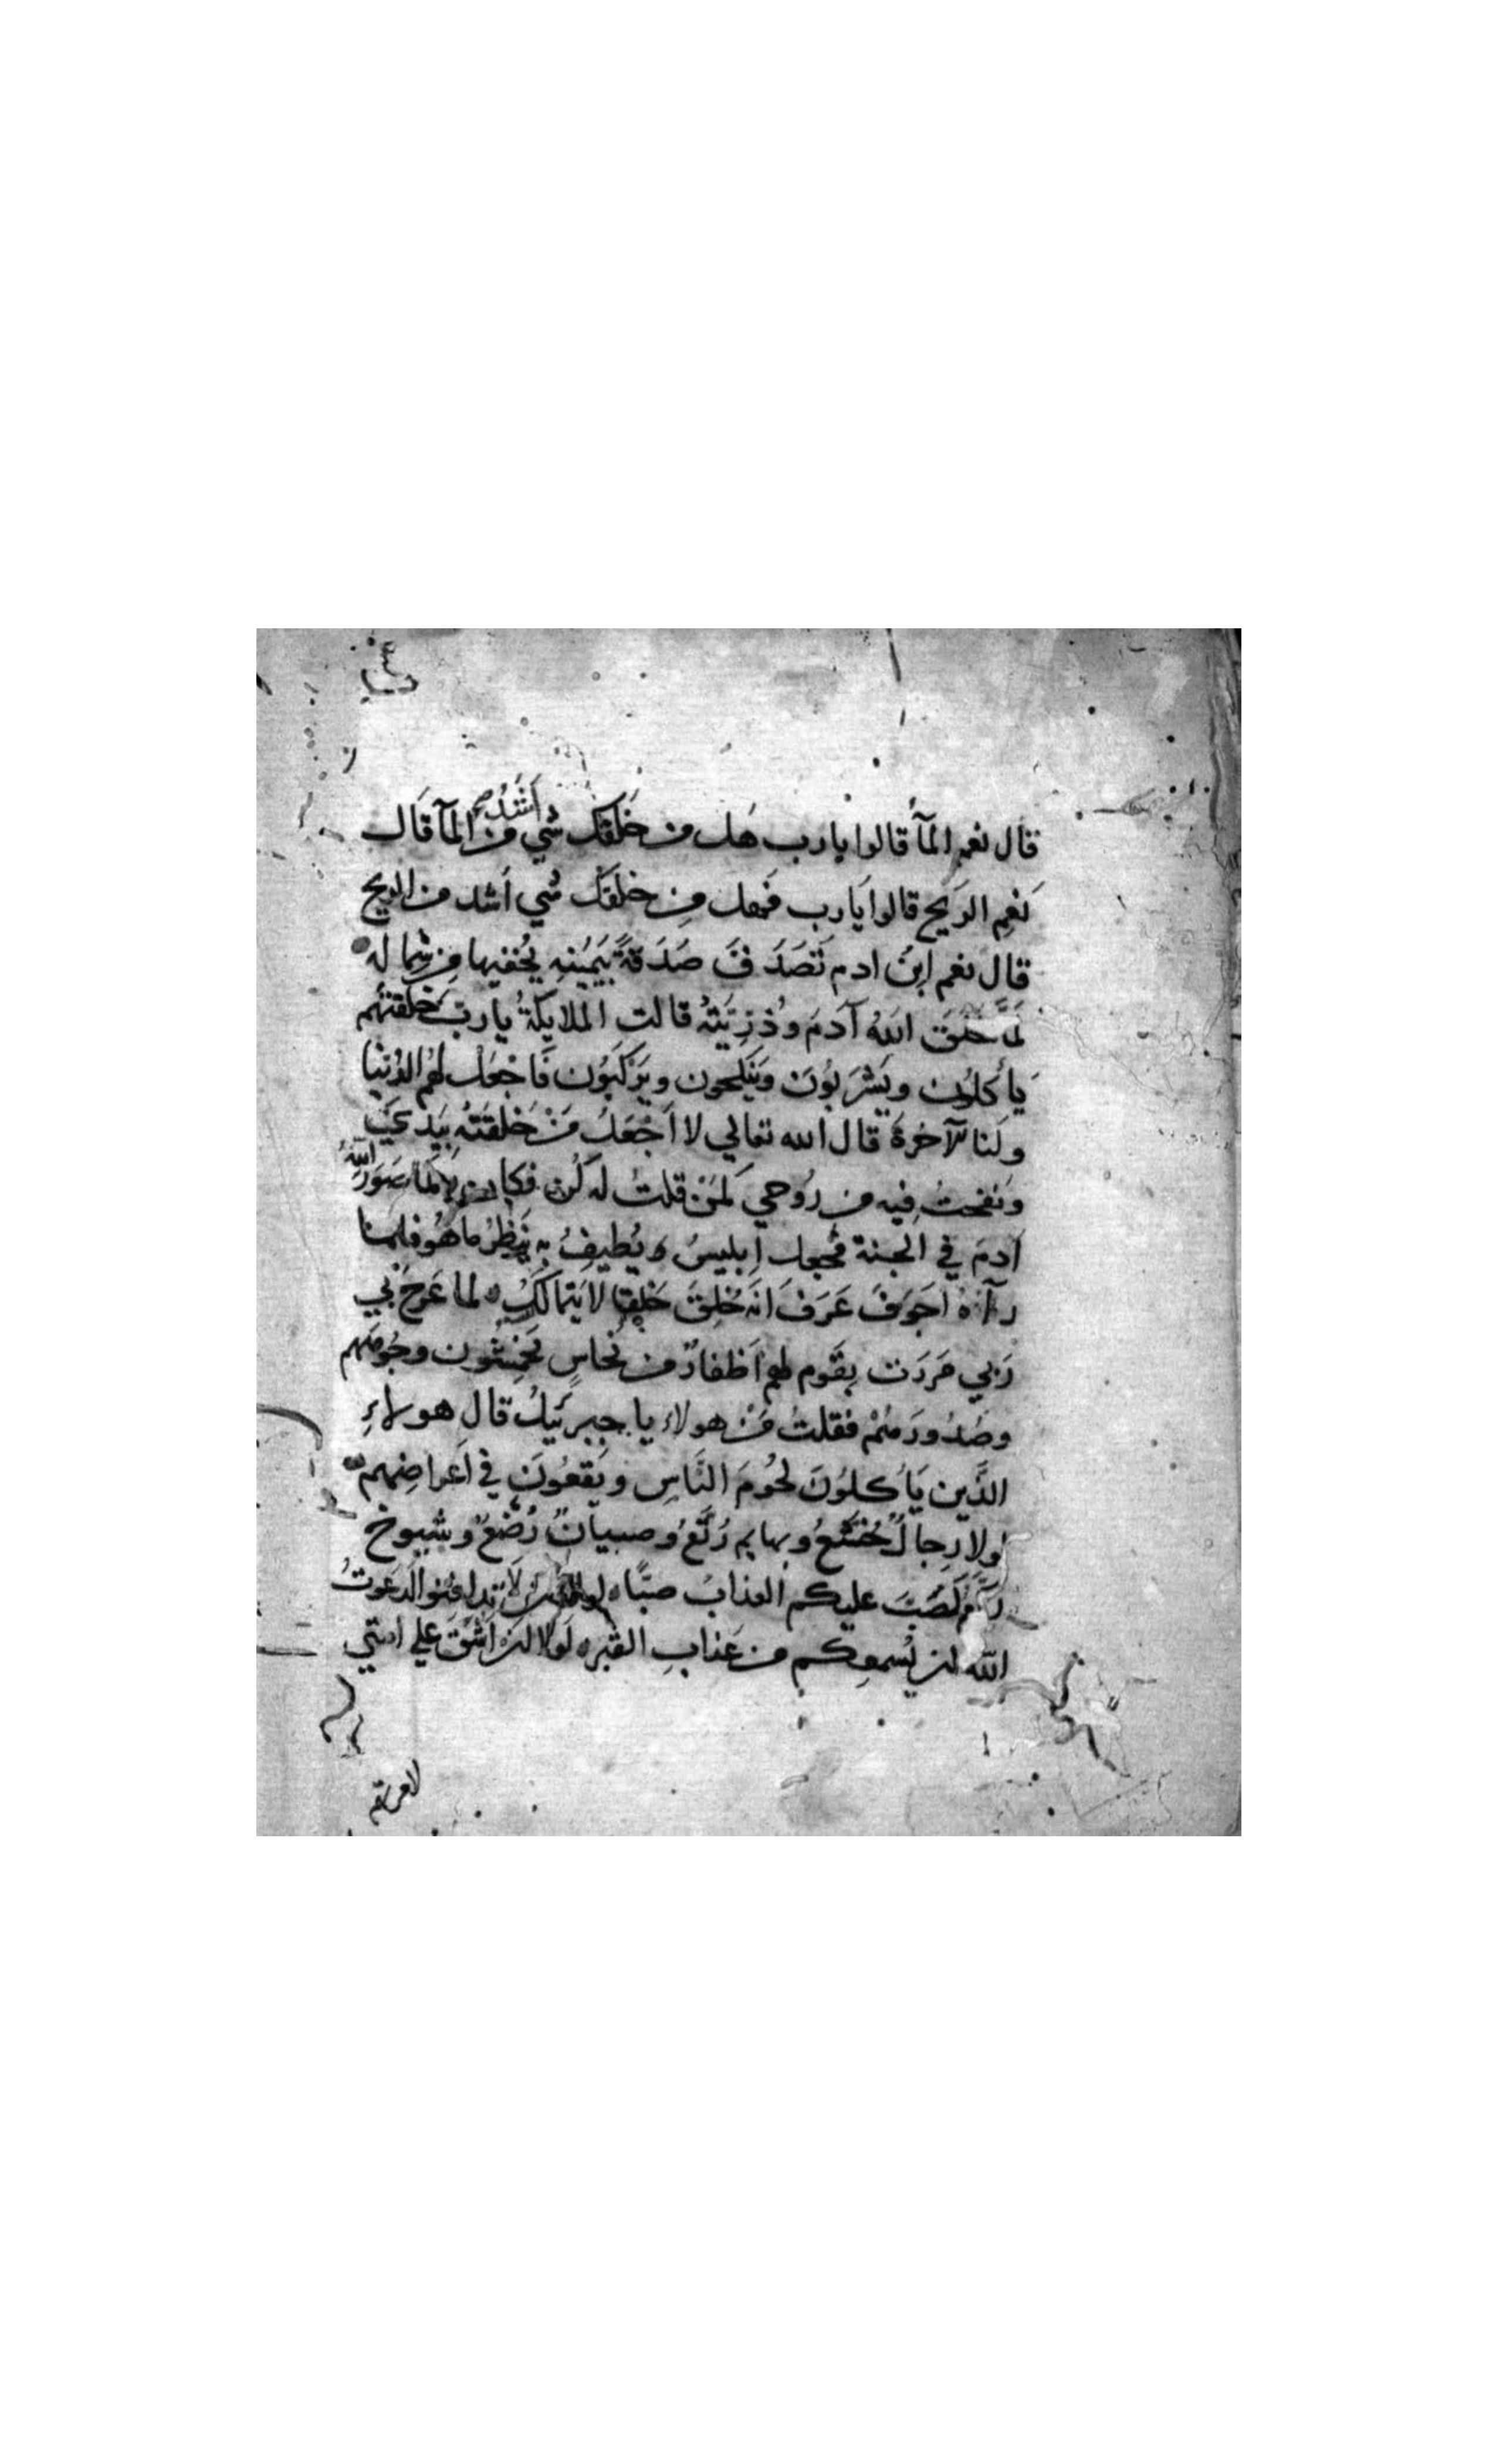 قال نعم المآء قالوا يا رب هل من خلقك شي اَشَدُّ من المآ قال
نعم الريح قالوا يا رب فهل من خلقك شي اشد من الريح
قال نعم ابنُ ادم تَصَدَّقَ صَدَقَةً بِيَمِينِهِ يُخفيها من شماله
لَمَّا خلق اللهُ آدمَ وذُرِّيَتَهُ قالت الملايكةُ يا ربِّ خلقتَهُم
يأكلُون ويَشْرَبُونَ ويَنكِحون ويَرْكَبُون فَاجْعَل لهُم الدُنْيا
ولنا الآخرةَ قال الله تعالي لا اَجْعَلُ مَنْ خَلَقتُه بِيَدَيَّ
ونفختُ فيه من رُوحي كَمَنْ قلتُ له كُن فكان لما صَوَّرَ اللهُ
آدمَ في الجنة فجعل اِبليسُ يُطيفُ بِهِ يَنظُرُ ما هُو فلما
رآهُ اَجوَفَ عَرَفَ انَّه خُلِقَ خَلقا لا يَتمالَكُ لما عَرَجَ بي
رَبي مَرَرت بِقَوم لهم اَظفارٌ من نُحاسٍ يَخمِشُون وجُوهَهم
وصُدُورَهُمْ فقلتُ مَنْ هولاء يا جبرئيلُ قال هولاءِ
الذَّين يَأكلُونَ لحُومَ النَّاسِ ويَقعُونَ في اَعراضِهم
لولا رِجالٌ خُشَّعٌ وبهايم رُتَّعٌ وصبيانٌ رُضَّعٌ وشيوخ
رُكَّعٌ لَصُبَّ عليكم العذابُ صبًّا لولا ان لا تدافنوا لدعوتُ
الله ان يُسمعكم من عذابِ القبر لَولا ان اشُقَّ علي امتي
لامرتهم